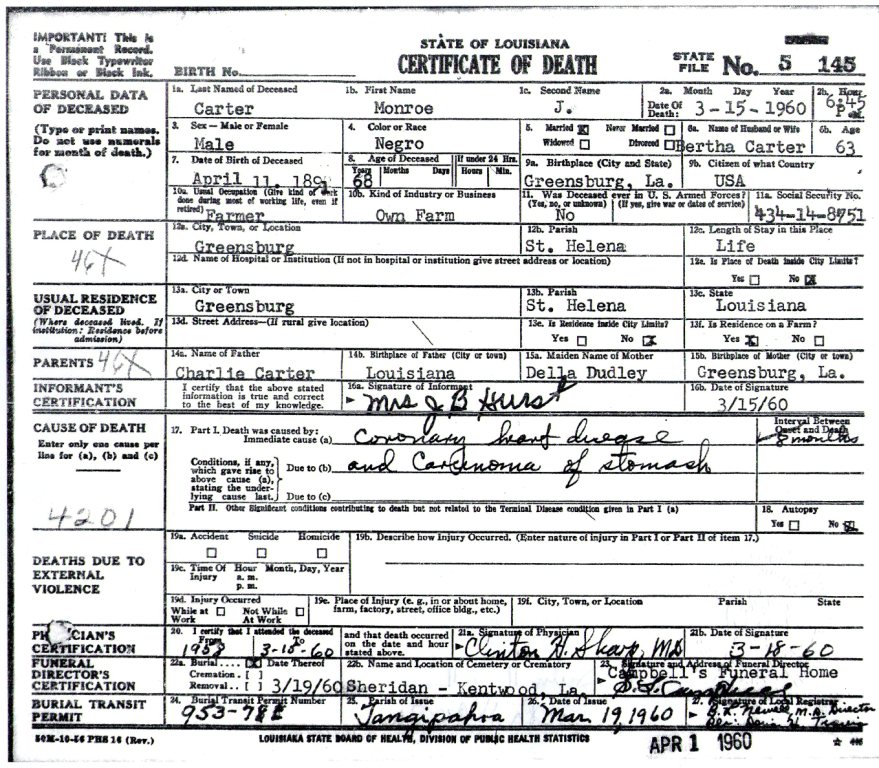 IMPORTANT! This is
a Permanent Record.
Use Black Typewriter
Ribbon or Black Ink.
STATE OF LOUISIANA
CERTIFICATE OF DEATH
BIRTH No.
STATE FILE No. 5 145
PERSONAL DATA OF DECEASED
(Type or print names. Do not use numerals for month of death.)
1a. Last Named of Deceased
Carter
1b. First Name
Monroe
1c. Second Name
J.
2a. Month Day Year
Date Of Death: 3-15-1960
2b. Hour
6:45 P.M.
3. Sex - Male or Female
Male
4. Color or Race
Negro
5. Married [X] Never Married [ ]
Widowed [ ] Divorced [ ]
6a. Name of Husband or Wife
Bertha Carter
6b. Age
63
7. Date of Birth of Deceased
April 11, 1891
8. Age of Deceased
Years Months Days
68
If under 24 Hrs.
Hours Min.
9a. Birthplace (City and State)
Greensburg, La.
9b. Citizen of what Country
USA
10a. Usual Occupation (Give kind of work done during most of working life, even if retired)
Farmer
10b. Kind of Industry or Business
Own Farm
11. Was Deceased ever in U. S. Armed Forces?
(Yes, no, or unknown) (If yes, give war or dates of service)
No
11a. Social Security No.
434-14-8751
PLACE OF DEATH
46X
12a. City, Town, or Location
Greensburg
12b. Parish
St. Helena
12c. Length of Stay in this Place
Life
12d. Name of Hospital or Institution (If not in hospital or institution give street address or location)
12e. Is Place of Death inside City Limits?
Yes [ ] No [X]
USUAL RESIDENCE OF DECEASED
(Where deceased lived. If institution: Residence before admission)
13a. City or Town
Greensburg
13b. Parish
St. Helena
13c. State
Louisiana
13d. Street Address—(If rural give location)
13e. Is Residence inside City Limits?
Yes [ ] No [X]
13f. Is Residence on a Farm?
Yes [X] No [ ]
PARENTS
46X
14a. Name of Father
Charlie Carter
14b. Birthplace of Father (City or town)
Louisiana
15a. Maiden Name of Mother
Della Dudley
15b. Birthplace of Mother (City or town)
Greensburg, La.
INFORMANT'S CERTIFICATION
I certify that the above stated information is true and correct to the best of my knowledge.
16a. Signature of Informant
Mrs J B Hurst
16b. Date of Signature
3/15/60
CAUSE OF DEATH
Enter only one cause per line for (a), (b) and (c)
4201
17. Part I. Death was caused by:
Immediate cause (a) Coronary heart disease
Interval Between Onset and Death
8 months
Conditions, if any, which gave rise to above cause (a), stating the underlying cause last.
Due to (b) and Carcinoma of stomach
Due to (c)
Part II. Other Significant conditions contributing to death but not related to the Terminal Disease condition given in Part I (a)
18. Autopsy
Yes [ ] No [X]
DEATHS DUE TO EXTERNAL VIOLENCE
19a. Accident Suicide Homicide
19b. Describe how Injury Occurred. (Enter nature of injury in Part I or Part II of item 17.)
19c. Time Of Injury Hour Month, Day, Year
a. m.
p. m.
19d. Injury Occurred
While at Work [ ] Not While At Work [ ]
19e. Place of Injury (e. g., in or about home, farm, factory, street, office bldg., etc.)
19f. City, Town, or Location Parish State
PHYSICIAN'S CERTIFICATION
20. I certify that I attended the deceased
From To
1958 3-15-60
and that death occurred on the date and hour stated above.
21a. Signature of Physician
Clinton H. Sharp, MD
21b. Date of Signature
3-18-60
FUNERAL DIRECTOR'S CERTIFICATION
22a. Burial [X] Date Thereof
Cremation [ ]
Removal [ ] 3/19/60
22b. Name and Location of Cemetery or Crematory
Sheridan - Kentwood, La.
23. Signature and Address of Funeral Director
Campbell's Funeral Home
BURIAL TRANSIT PERMIT
24. Burial Transit Permit Number
953-788
25. Parish of Issue
Tangipahoa
26. Date of Issue
Mar 19, 1960
27. Signature of Local Registrar
Director
50M-10-56 PHS 16 (Rev.)
LOUISIANA STATE BOARD OF HEALTH, DIVISION OF PUBLIC HEALTH STATISTICS
APR 1 1960